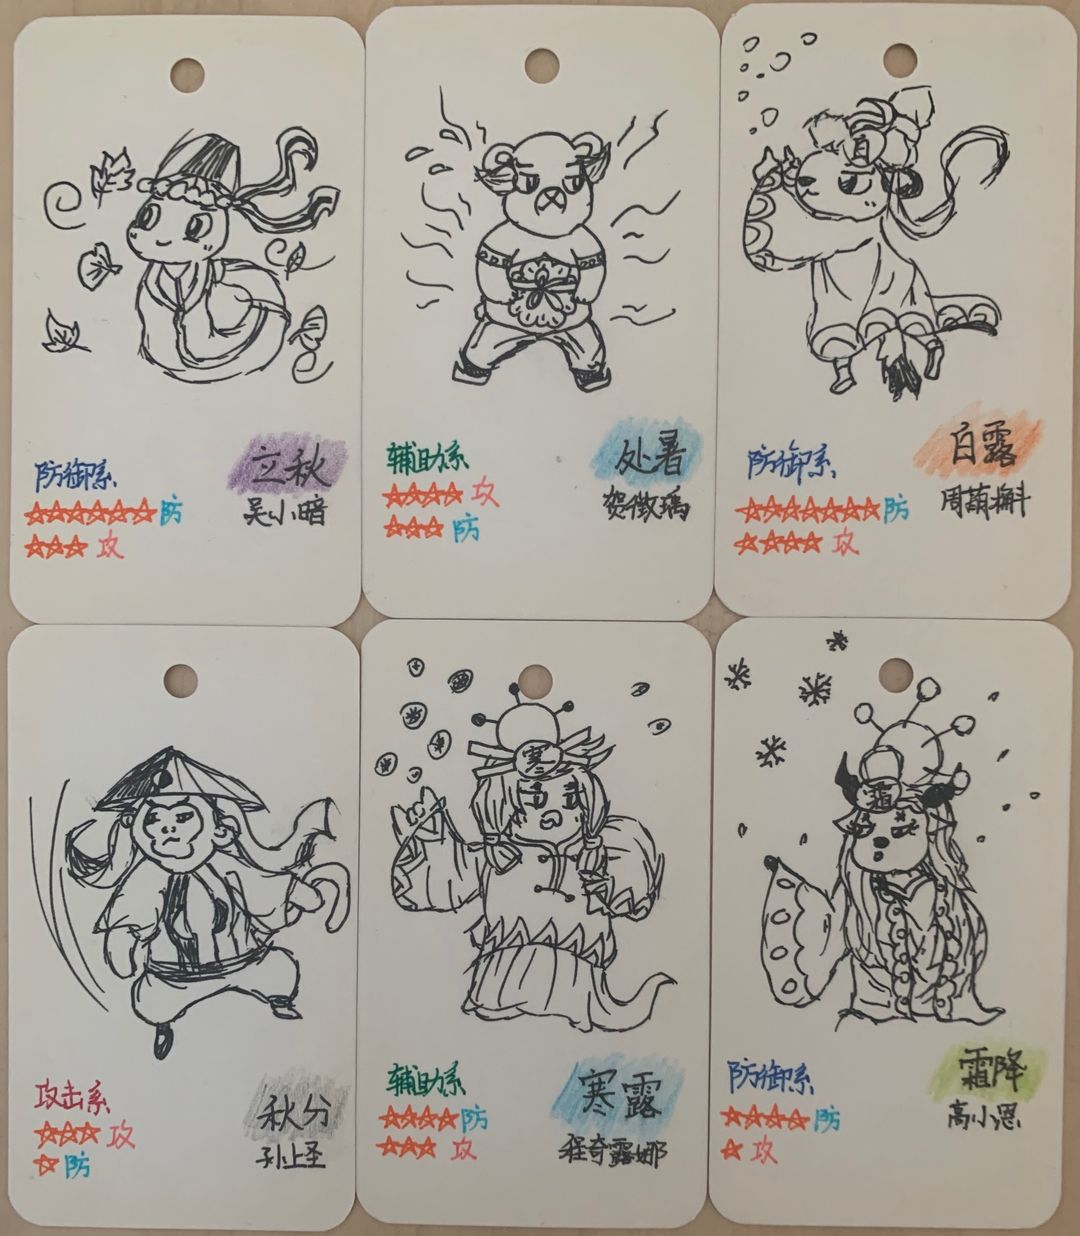 防御系
☆☆☆☆☆☆防
☆☆☆攻
立秋
吴小暗
辅助系
☆☆☆☆攻
☆☆☆防
处暑
贺徵瑀
白
防御系
☆☆☆☆☆☆☆防
☆☆☆☆攻
白露
周葫槲
攻击系
☆☆☆攻
☆防
秋分
孙上圣
寒
辅助系
☆☆☆☆防
☆☆☆攻
寒露
程奇露娜
霜
防御系
☆☆☆☆防
☆攻
霜降
高小